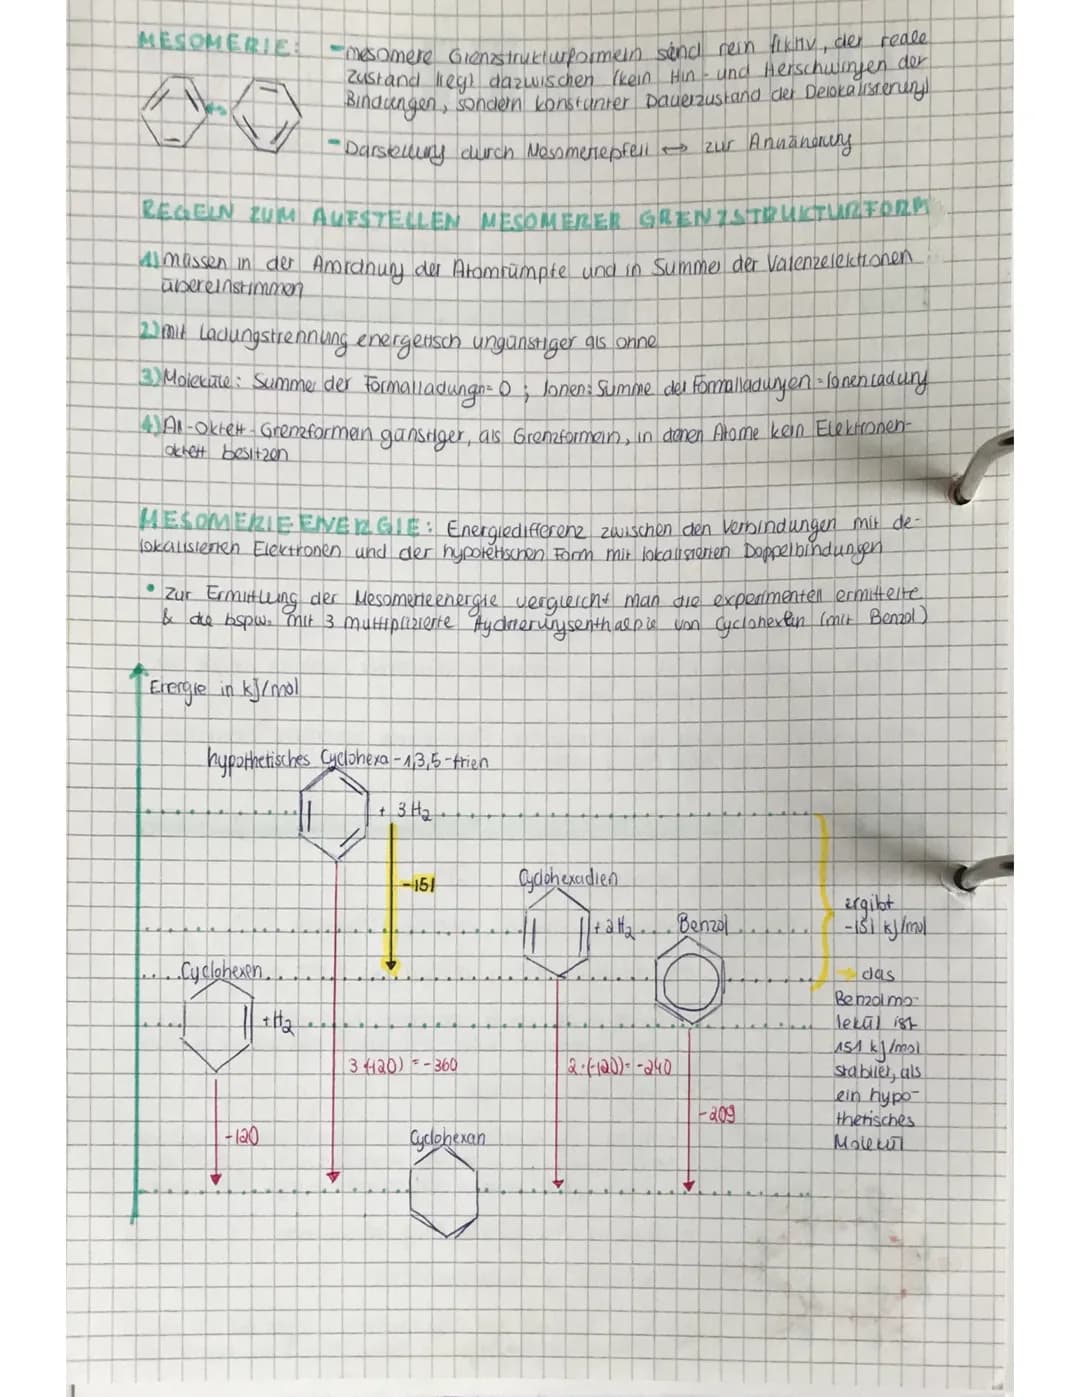 MESOMERIE: -mesomere Grenzstrukturformeln sind rein fiktiv, der reale
Zustand liegt dazwischen (kein Hin- und Herschwingen der
Bindungen, sondern konstanter Dauerzustand der Delokalisierung)
-Darstellung durch Mesomeriepfeil ↔ zur Annäherung
REGELN ZUM AUFSTELLEN MESOMERER GRENZSTRUKTURFORM
1) müssen in der Anordnung der Atomrümpfe und in Summe der Valenzelektronen
übereinstimmen
2) mit Ladungstrennung energetisch ungünstiger als ohne
3) Moleküle: Summe der Formalladungn = 0 ; Ionen: Summe der Formalladungen = Ionenladung
4) All-Oktett-Grenzformen günstiger, als Grenzformeln, in denen Atome kein Elektronen-
oktett besitzen
MESOMERIEENERGIE: Energiedifferenz zwischen den Verbindungen mit de-
lokalisierten Elektronen und der hypotetischen Form mit lokalisierten Doppelbindungen
• zur Ermittlung der Mesomerieenergie vergleicht man die experimentell ermittelte
& die bspw. mit 3 multiplizierte Hydrierungsenthalpie von Cyclohexen (mit Benzol)
Energie in kJ/mol
hypothetisches Cyclohexa-1,3,5-trien
+ 3 H2
-151
Cyclohexadien
+ 2 H2
Benzol
ergibt
-151 kJ/mol
Cyclohexen
+ H2
→ das
Benzolmo-
lekül ist
151 kJ/mol
stabiler, als
ein hypo-
thetisches
Molekül
3·(-120) = -360
2·(-120) = -240
-209
-120
Cyclohexan